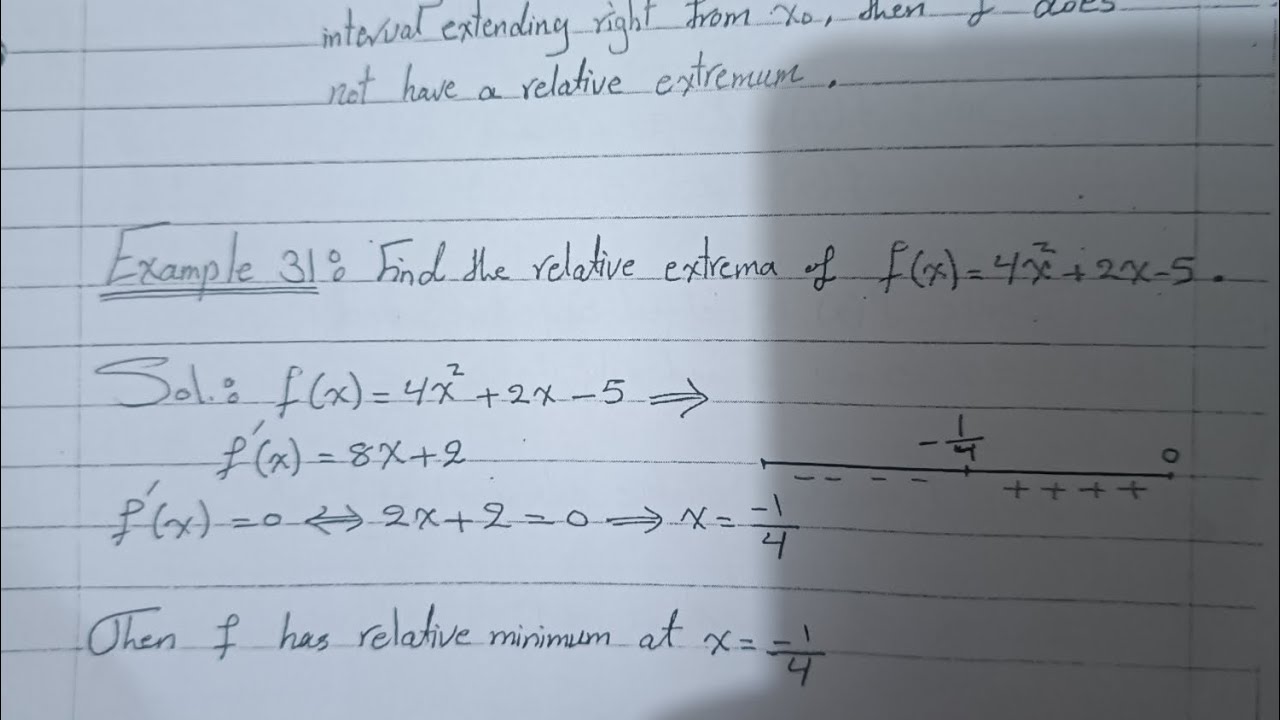 interval extending right from x₀, then f does
not have a relative extremum.
Example 31: Find the relative extrema of f(x)=4x²+2x-5.
Sol.: f(x)=4x²+2x-5 ⟹
f'(x)=8x+2
-1/4 0
- - - - + + + +
f'(x)=0 ⟺ 2x+2=0 ⟹ x=-1/4
Then f has relative minimum at x=-1/4